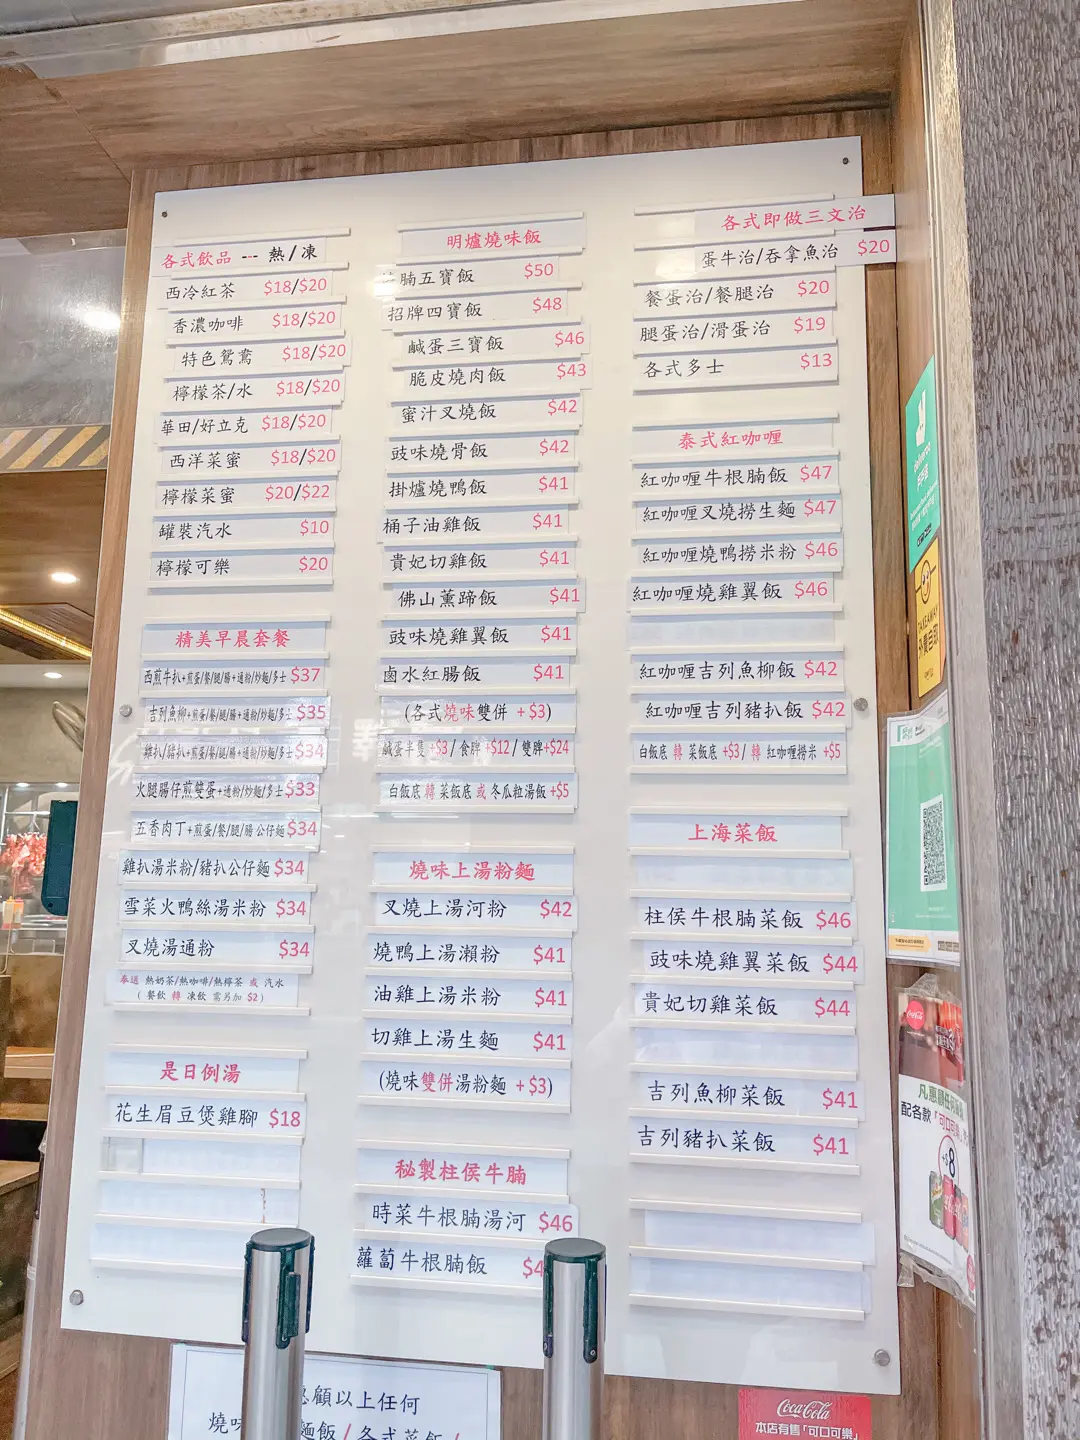 各式飲品 --- 熱/凍
西冷紅茶 $18/$20
香濃咖啡 $18/$20
特色鴛鴦 $18/$20
檸檬茶/水 $18/$20
華田/好立克 $18/$20
西洋菜蜜 $18/$20
檸檬菜蜜 $20/$22
罐裝汽水 $10
檸檬可樂 $20
精美早晨套餐
西煎牛扒+煎蛋/餐/腿/腸+通粉/炒麵/多士 $37
吉列魚柳+煎蛋/餐/腿/腸+通粉/炒麵/多士 $35
雞扒/豬扒+煎蛋/餐/腿/腸+通粉/炒麵/多士 $34
火腿腸仔煎雙蛋+通粉/炒麵/多士 $33
五香肉丁+煎蛋/餐/腿/腸 公仔麵 $34
雞扒湯米粉/豬扒公仔麵 $34
雪菜火鴨絲湯米粉 $34
叉燒湯通粉 $34
奉送 熱奶茶/熱咖啡/熱檸茶 或 汽水
(餐飲 轉 凍飲 需另加 $2)
是日例湯
花生眉豆煲雞腳 $18
明爐燒味飯
腩五寶飯 $50
招牌四寶飯 $48
鹹蛋三寶飯 $46
脆皮燒肉飯 $43
蜜汁叉燒飯 $42
豉味燒骨飯 $42
掛爐燒鴨飯 $41
桶子油雞飯 $41
貴妃切雞飯 $41
佛山薰蹄飯 $41
豉味燒雞翼飯 $41
鹵水紅腸飯 $41
(各式燒味雙併 +$3)
鹹蛋半隻 +$3 / 食髀 +$12 / 雙髀+$24
白飯底 轉 菜飯底 或 冬瓜粒湯飯 +$5
燒味上湯粉麵
叉燒上湯河粉 $42
燒鴨上湯瀨粉 $41
油雞上湯米粉 $41
切雞上湯生麵 $41
(燒味雙併湯粉麵 +$3)
秘製柱侯牛腩
時菜牛根腩湯河 $46
蘿蔔牛根腩飯
各式即做三文治
蛋牛治/吞拿魚治 $20
餐蛋治/餐腿治 $20
腿蛋治/滑蛋治 $19
各式多士 $13
泰式紅咖喱
紅咖喱牛根腩飯 $47
紅咖喱叉燒撈生麵 $47
紅咖喱燒鴨撈米粉 $46
紅咖喱燒雞翼飯 $46
紅咖喱吉列魚柳飯 $42
紅咖喱吉列豬扒飯 $42
白飯底 轉 菜飯底 +$3 / 轉 紅咖喱撈米 +$5
上海菜飯
柱侯牛根腩菜飯 $46
豉味燒雞翼菜飯 $44
貴妃切雞菜飯 $44
吉列魚柳菜飯 $41
吉列豬扒菜飯 $41
顧以上任何
燒味
麵飯 / 各式菜飯 /
Coca-Cola
本店有售「可口可樂」
凡惠顧任何
配各款「可口可樂」
+$8
TAKEAWAY
外賣自取